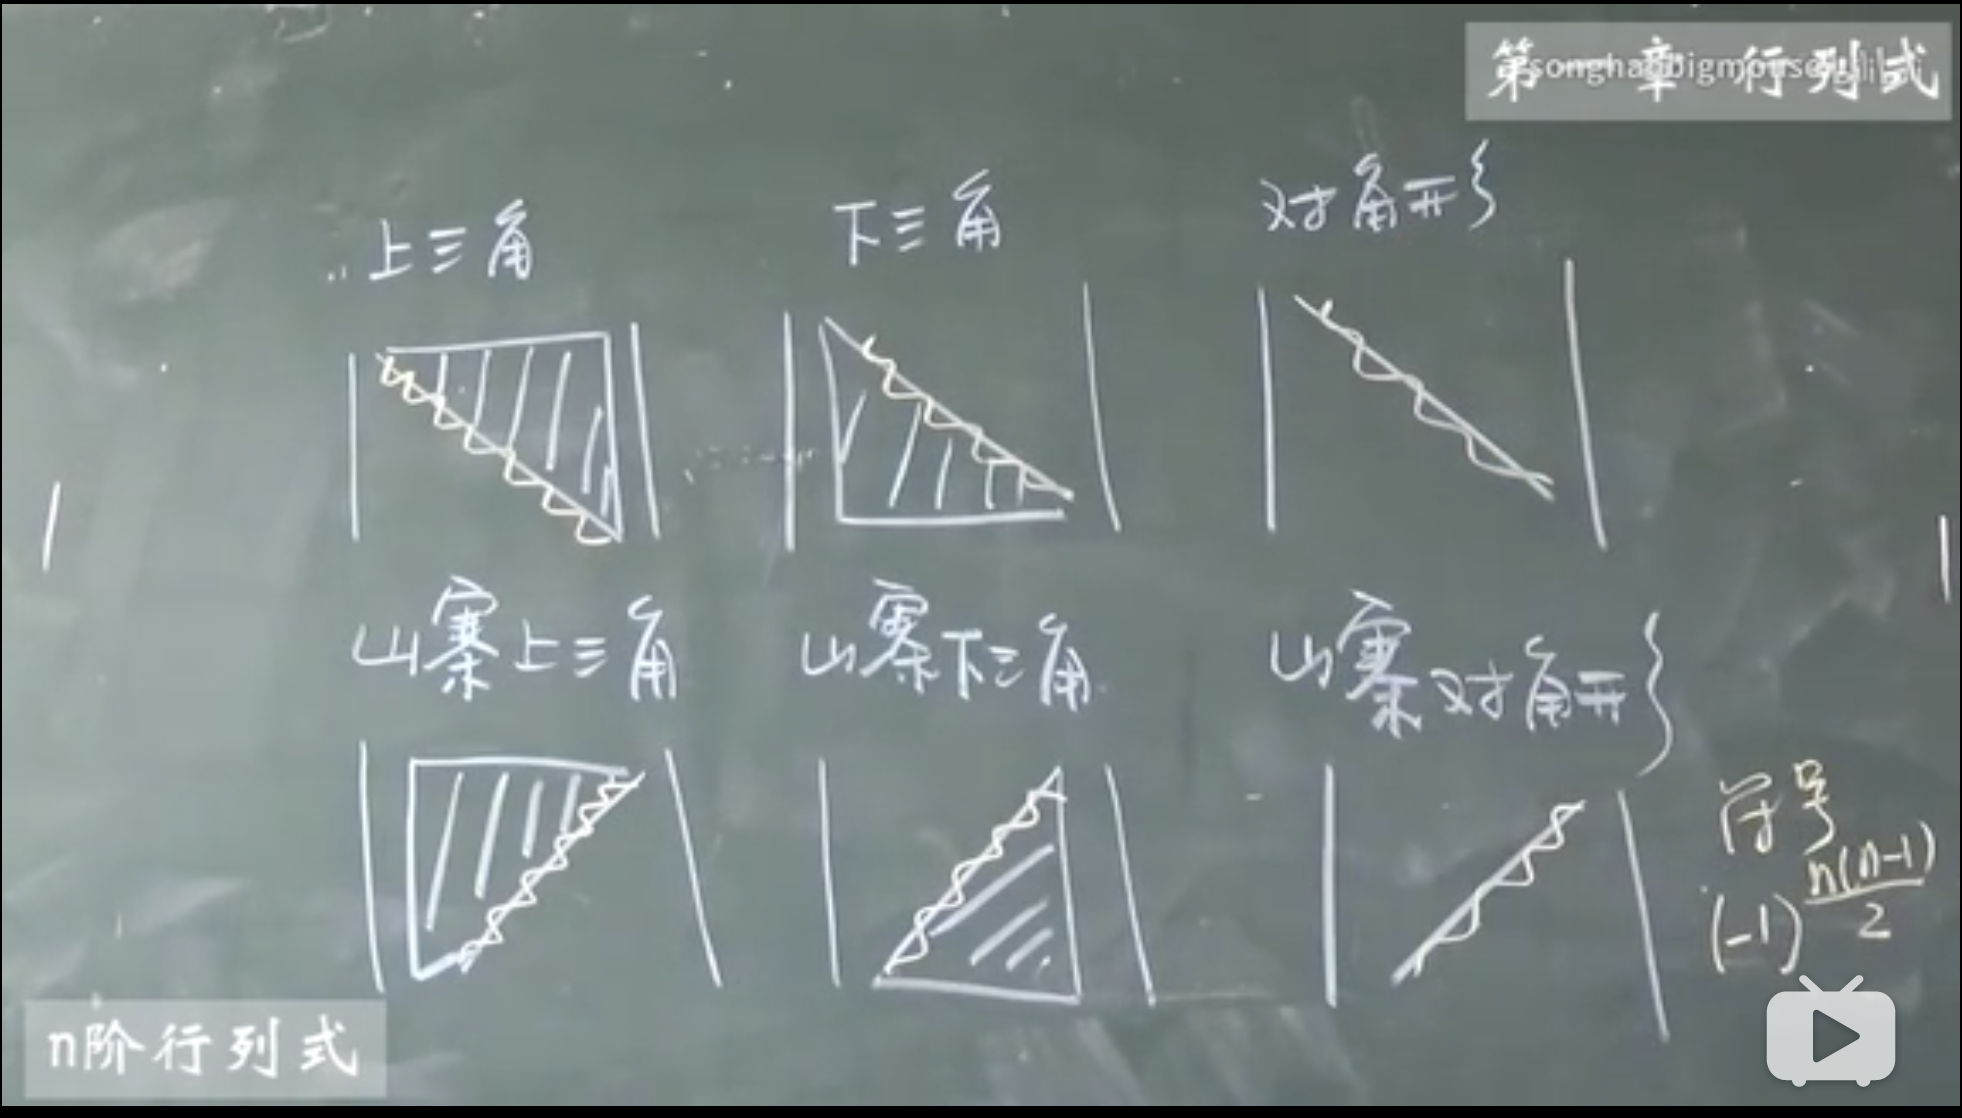 第一章 行列式
songhaobigmouse
上三角
下三角
对角形
山寨上三角
山寨下三角
山寨对角形
符号
(-1)^{\frac{n(n-1)}{2}}
n阶行列式